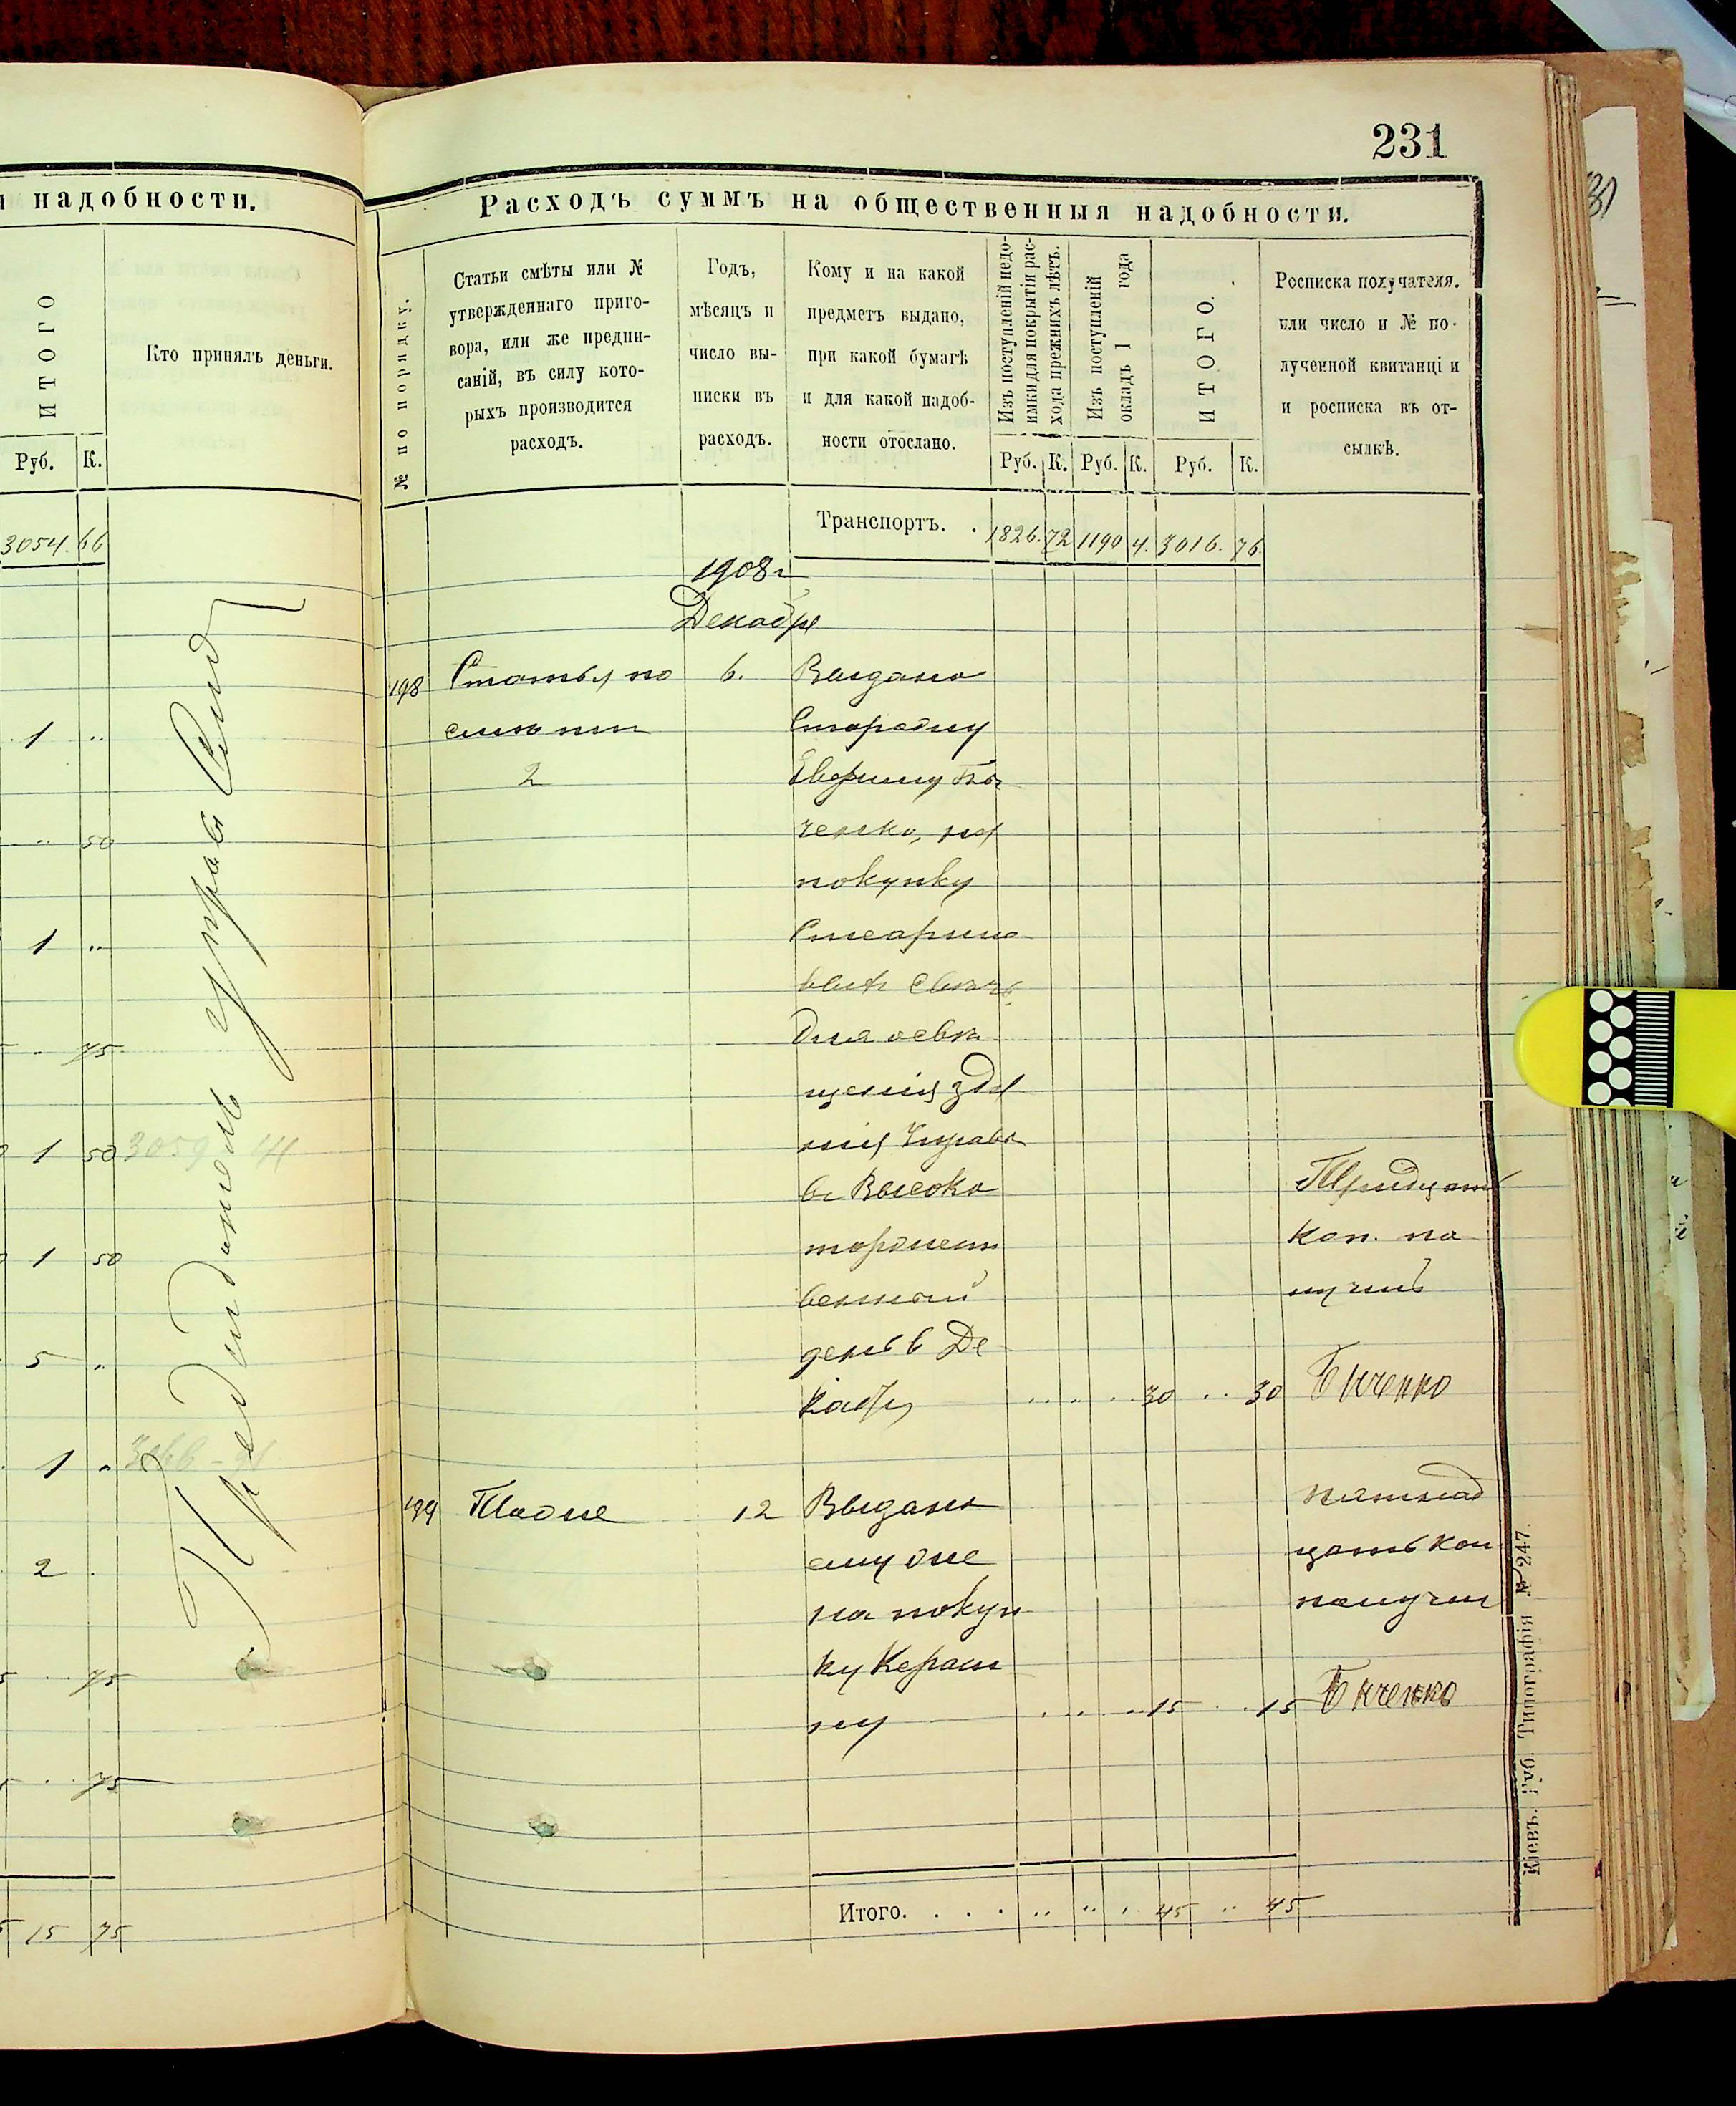 надобности.
ИТОГО
Кто принялъ деньги.
Руб. К.
3054. 66
1 "
" 50
1 "
75
1 50 3059
1 50
5 "
1 "
2
75
75
15 75
231
Расходъ суммъ на общественныя надобности.
№ по порядку.
Статьи смѣты или №
утвержденнаго приго-
вора, или же предпи-
саній, въ силу кото-
рыхъ производится
расходъ.
Годъ,
мѣсяцъ и
число вы-
писки въ
расходъ.
Кому и на какой
предметъ выдано,
при какой бумагѣ
и для какой надоб-
ности отослано.
Изъ поступленій недо-
имки для покрытія рас-
хода прежнихъ лѣтъ.
Изъ поступленій
окладъ 1 года
ИТОГО.
Росписка получателя.
или число и № по-
лученной квитанці и
и росписка въ от-
сылкѣ.
Руб. К. Руб. К. Руб. К.
Транспортъ. . 1826. 72 1190 4. 3016. 76.
1908 г
Декабря
198 Статья по 6. Выдано
смѣти Сторожу
2
ченко, на
покупку
Стеарино
выхъ свѣчъ
для освѣ
щенія зда
нія Управы
въ Высоко
торжест
венный
день 6 Де
кабря 30 30
Тридцать
коп. по
лучил
Бѣченко
199 Тоже 12 Выдано
ему же
на покуп
ку Кераси
ну 15 15
пятнад
цать коп
получил
Бѣченко
Итого. . . . 45 45
Кіевъ. Губ. Типографія № 247.